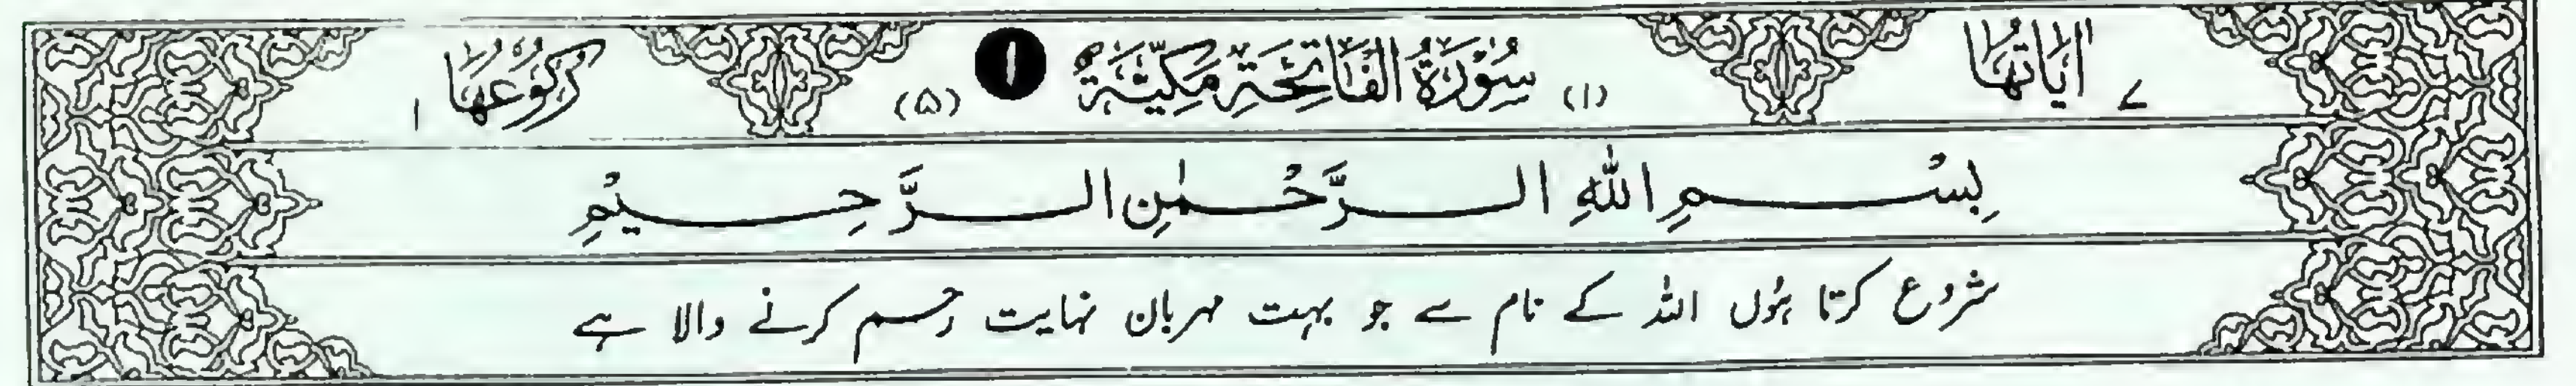 اٰيَاتُهَا ٧ (١) سُوْرَةُ الْفَاتِحَةِ مَكِّيَّةٌ ١ (۵) رُكُوْعُهَا ١
بِسْمِ اللّٰهِ الرَّحْمٰنِ الرَّحِيْمِ
شروع کرتا ہُوں اللہ کے نام سے جو بہت مہربان نہایت رحم کرنے والا ہے